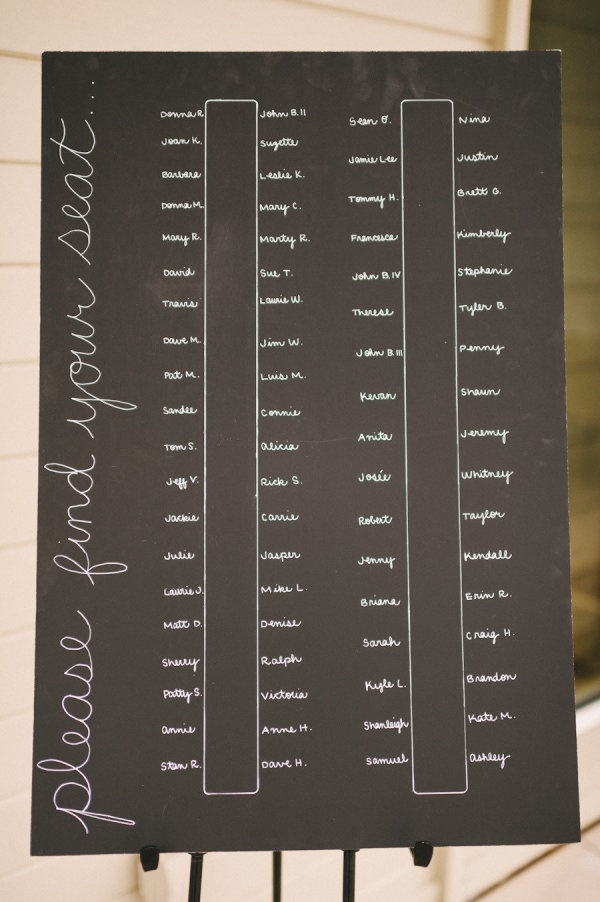 please find your seat...
Donna R.
Joan K.
Barbara
Donna M.
Mary R.
David
Travis
Dave M.
Pat M.
Sandee
Tom S.
Jeff V.
Jackie
Julie
Laurie J.
Matt D.
Sherry
Patty S.
Annie
Stan R.
John B. II
Suzette
Leslie K.
Mary C.
Marty R.
Sue T.
Laurie W.
Jim W.
Luis M.
Connie
Alicia
Rick S.
Carrie
Jasper
Mike L.
Denise
Ralph
Victoria
Anne H.
Dave H.
Sean O.
Jamie Lee
Tommy H.
Francesca
John B. IV
Therese
John B. III
Kevan
Anita
Josée
Robert
Jenny
Briana
Sarah
Kyle L.
Shanleigh
Samuel
Nina
Justin
Brett G.
Kimberly
Stephanie
Tyler B.
Penny
Shaun
Jeremy
Whitney
Taylor
Kendall
Erin R.
Craig H.
Brandon
Kate M.
Ashley